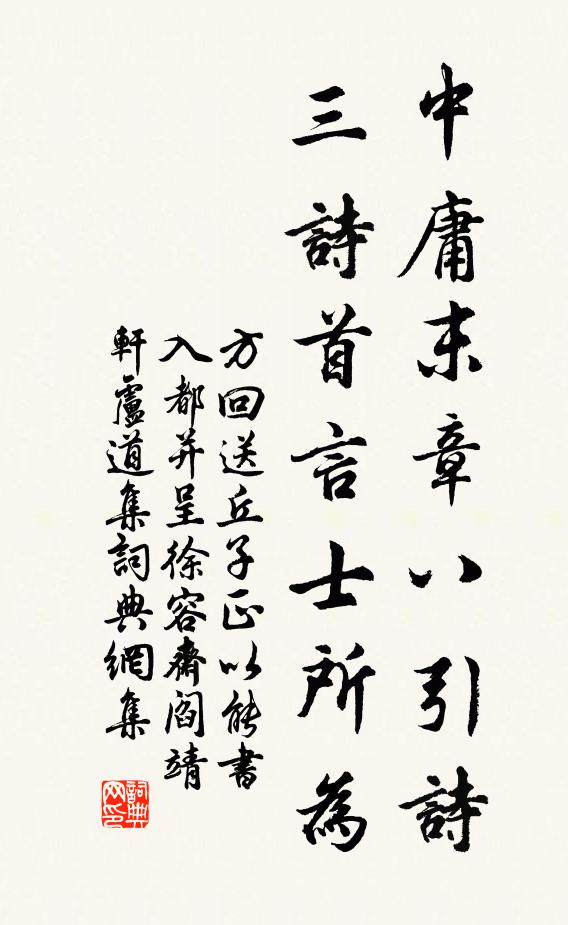 中庸末章八引詩
三詩首言士所為
方回送丘子正以能書
入都并呈徐容齋閻靖
軒盧道集詞典網集
詞典网印